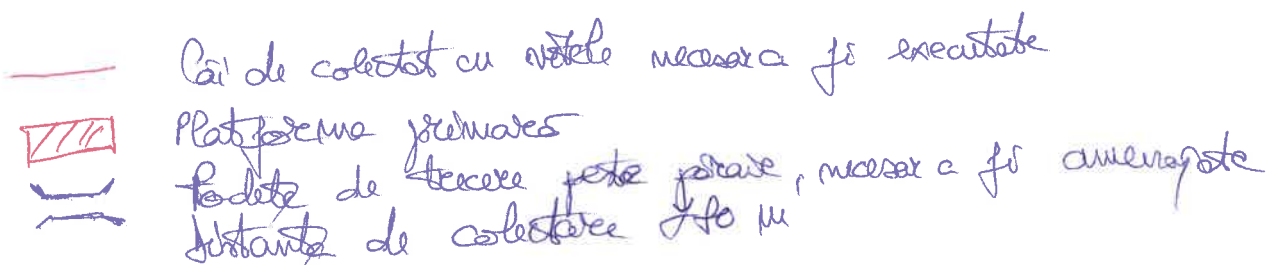 Căi de colectat cu vitele necesar a fi executate
Platforma primară
Podețe de trecere peste pâraie, necesar a fi amenajate
Distanța de colectare m